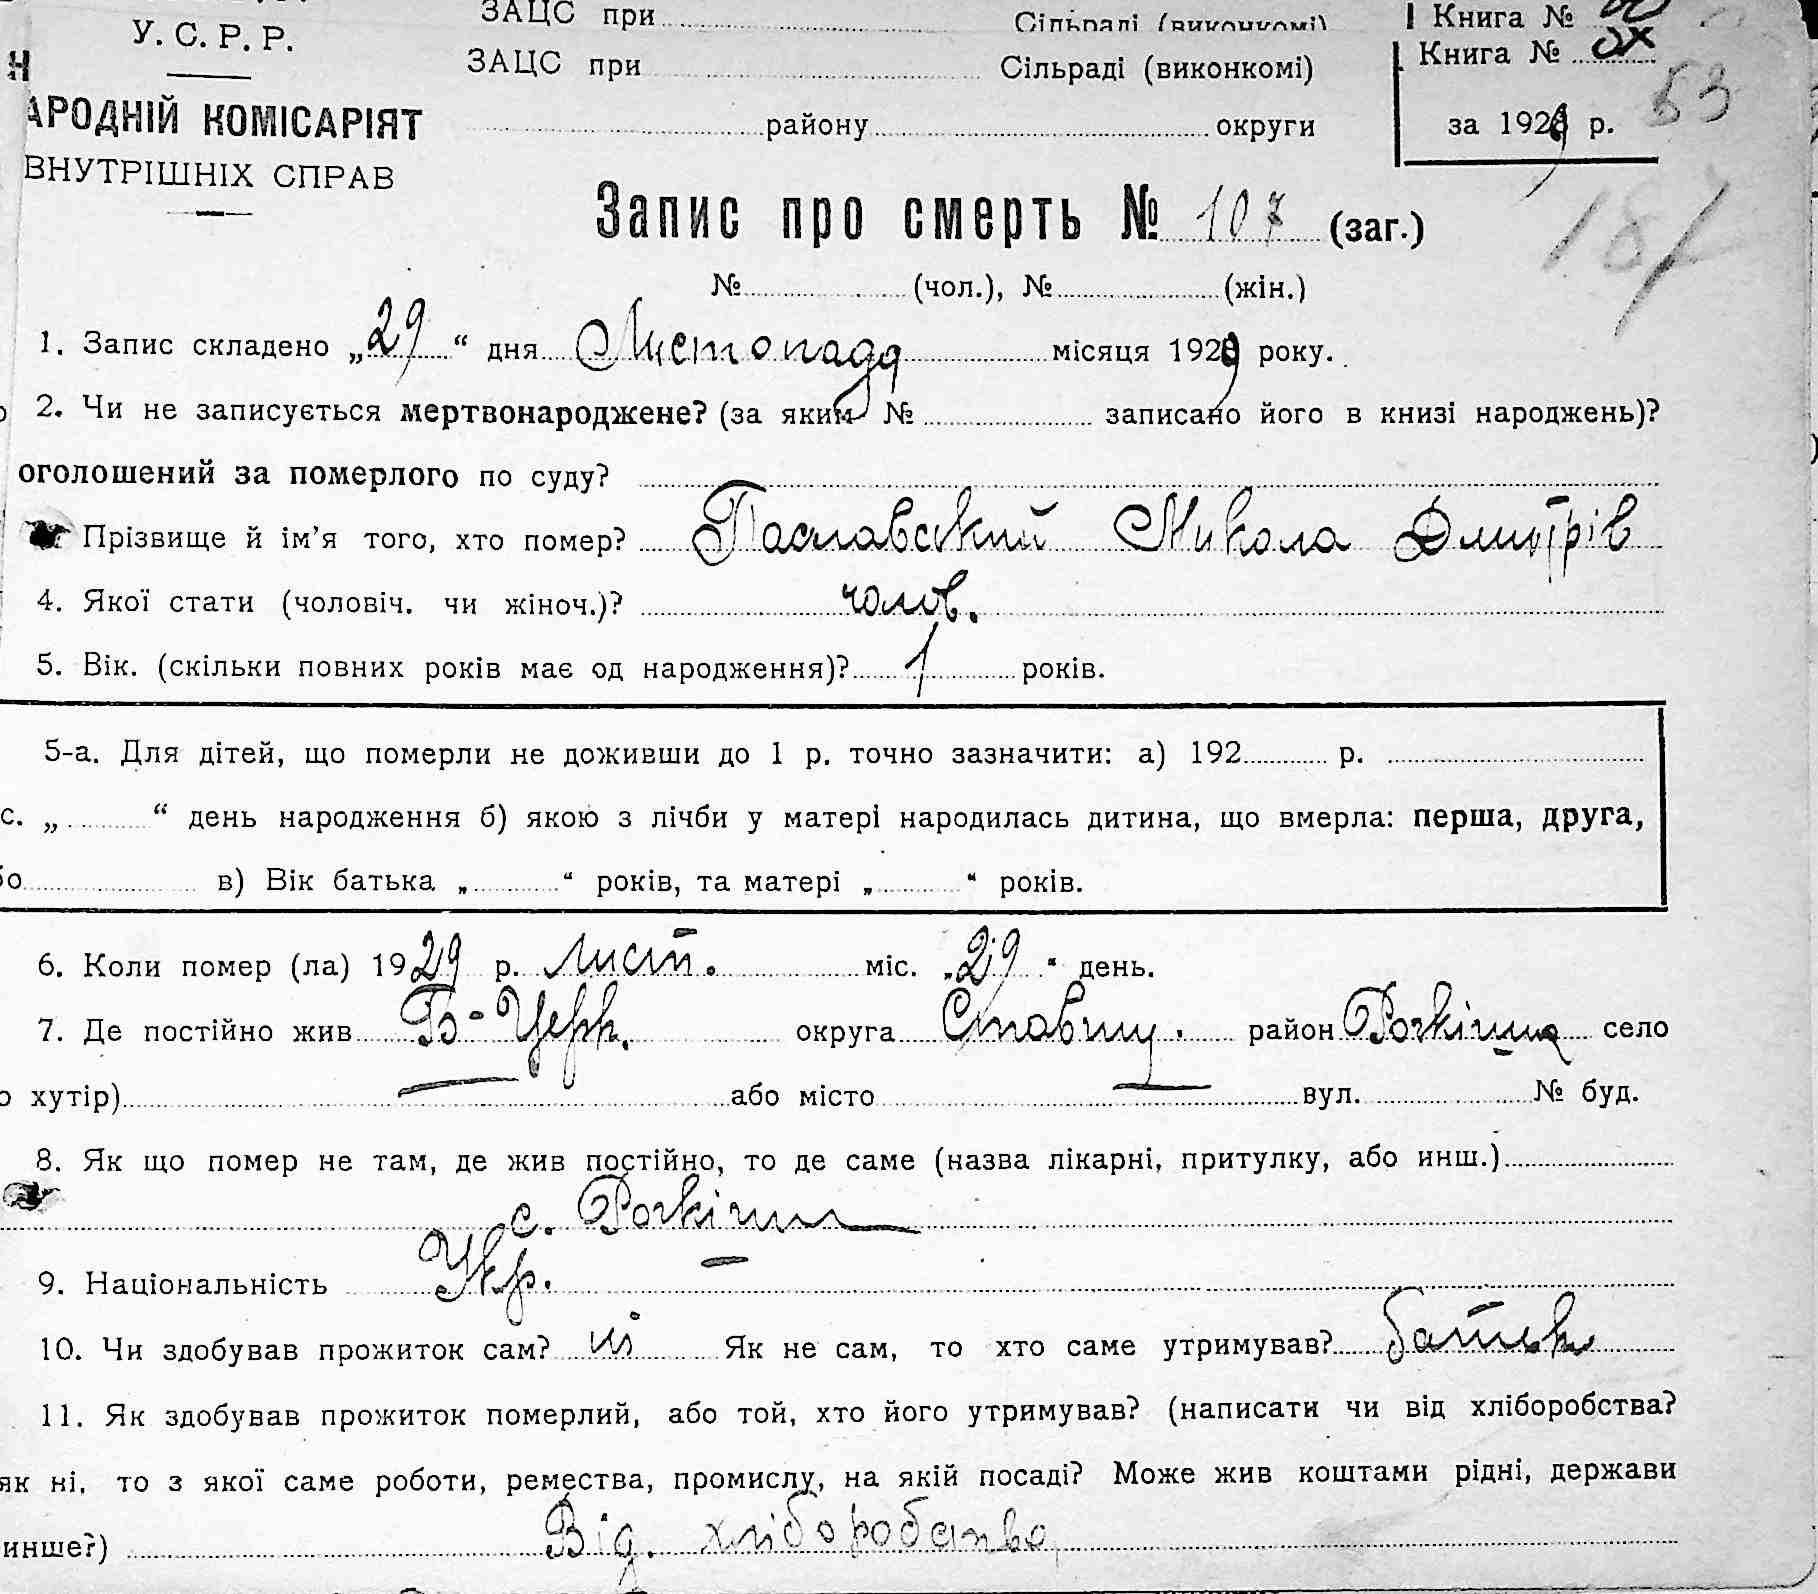 У. С. Р. Р.
ЗАЦС при Сільраді (виконкомі)
Книга №
Н
ЗАЦС при Сільраді (виконкомі)
Книга №
53
АРОДНІЙ КОМІСАРІЯТ
району округи
за 1929 р.
ВНУТРІШНІХ СПРАВ
Запис про смерть № 107 (заг.)
187
№ (чол.), № (жін.)
1. Запис складено „29“ дня Листопада місяця 1929 року.
2. Чи не записується мертвонароджене? (за яким № записано його в книзі народжень)?
оголошений за померлого по суду?
Прізвище й ім’я того, хто помер? Паславський Микола Дмитрів
4. Якої стати (чоловіч. чи жіноч.)? чолов.
5. Вік. (скільки повних років має од народження)? 1 років.
5-а. Для дітей, що померли не доживши до 1 р. точно зазначити: а) 192 р.
с. „ “ день народження б) якою з лічби у матері народилась дитина, що вмерла: перша, друга,
бо в) Вік батька „ “ років, та матері „ “ років.
6. Коли помер (ла) 1929 р. лист. міс. „29“ день.
7. Де постійно жив Б-Церк. округа Ставищ. район Розкішна село
о хутір) — або місто — вул. № буд.
8. Як що помер не там, де жив постійно, то де саме (назва лікарні, притулку, або инш.)
с. Розкішна
9. Національність Укр.
10. Чи здобував прожиток сам? ні Як не сам, то хто саме утримував? батько
11. Як здобував прожиток померлий, або той, хто його утримував? (написати чи від хліборобства?
як ні, то з якої саме роботи, ремества, промислу, на якій посаді? Може жив коштами рідні, держави
инше?) Від. хліборобства